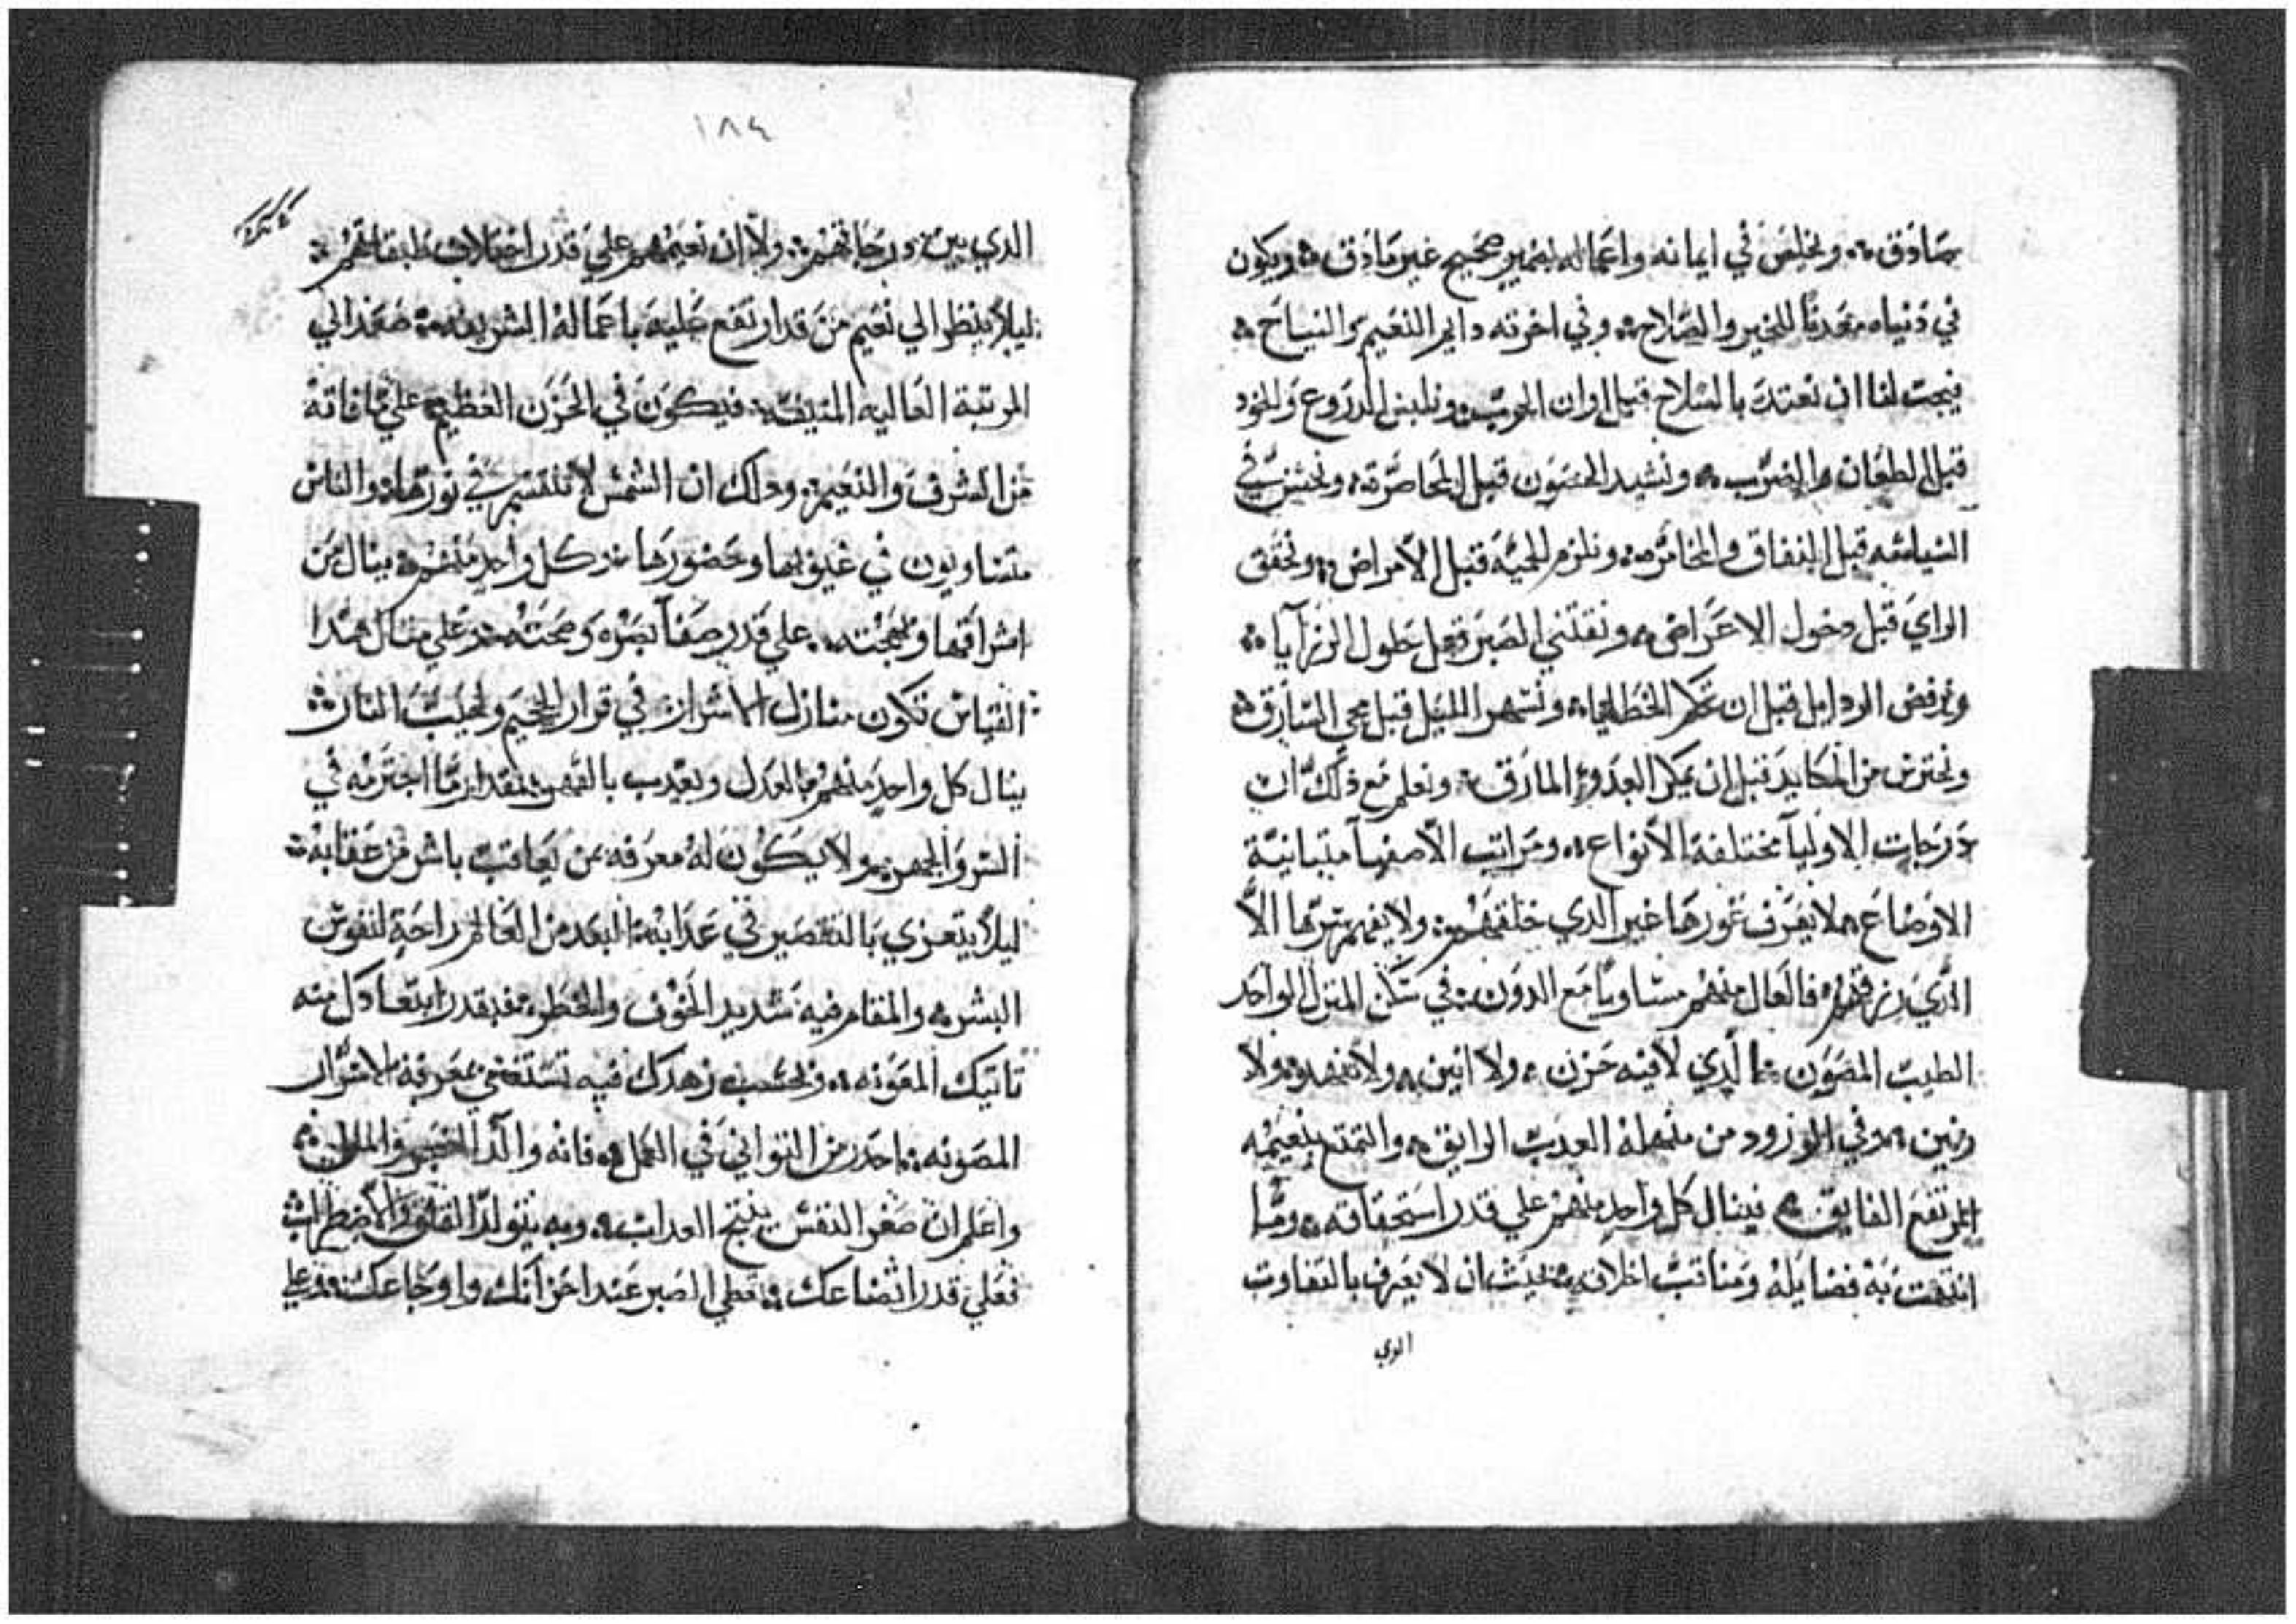 صادق ۞ ويخلص في ايمانه واعماله بضمير صحيح غير مادق ۞ ويكون
في دنياه معدنا للخير والصلاح ۞ وفي اخرته دايم النعيم والنياح ۞
فيجب لنا ان نعتد بالسلاح قبل اوان الحرب ۞ ونلبس الدروع والخود
قبل الطعان والضرب ۞ ونشيد الحصون قبل المحاصرة ۞ ونحسن في
السياسه قبل النفاق والمخامره ۞ ونلزم الحميه قبل الامراض ۞ ونحقق
الراي قبل دخول الاعراض ۞ ونقتني الصبر قبل حلول الرزايا ۞
ونرفض الردايل قبل ان الخطايا ۞ ونسهر الليل قبل مجي السارق ۞
ونحترس من المكايد قبل ان العدو المارق ۞ ونعلم مع ذلك ان
درجات الاوليا مختلفة الانواع ۞ ومراتب الاصفيا متباينة
الاوضاع ۞ لا يعرف غورها غير الدي خلقهم ۞ ولا يفهم سرها الا
الدي رزقهم ۞ فالعال منهم مساويا مع الدون ۞ في سكن المنزل الواحد
الطيب المصون ۞ الدي لا فيه حزن ۞ ولا انين ۞ ولا تنهد ۞ ولا
رنين ۞ وفي الورود من منهله العدب الرايق ۞ والتمتع بنعيمه
المرتفع الفايق ۞ فينال كل واحد منهم علي قدر استحقاقه ۞ وما
انتهت به فضايله ومناقب اخلاقه ۞ بحيث ان لا يعرف بالتفاوت
الدي
١٨٤
الدي بين درجاتهم ۞ ولا ان نعيمهم علي قدر اختلاف طبقاتهم ۞
ليلا ينظر الي نعيم من قد ارتفع عليه باعماله الشريفه ۞ صعد الي
المرتبة العاليه المنيفه ۞ فيكون في الحزن العظيم علي ما فاته
من الشرف والنعيم ۞ ودلك ان الشمس لا تنقسم في نورها ۞ والناس
متساويون في غيوبها وحضورها ۞ وكل واحد منهم ينال من
اشراقها وبهجته ۞ علي قدر صفا بصره وصحته ۞ وعلي مثال هدا
القياس تكون منازل الاشرار في قرار الجحيم ولهيب النار ۞
ينال كل واحد منهم بالعدل ويعدب بالقهر ۞ بمقدار ما اجترمه في
السر والجهر ۞ ولا يكون له معرفه بمن يعاقب باشر من عقابه ۞
ليلا يتعزي بالتقصير في عدابه ۞ البعد من العالم راحة لنفوس
البشر ۞ والمقام فيه شديد الخوف والخطر ۞ فبقدر ابتعادك منه
تاتيك المعونه ۞ وبحسب زهدك فيه تستغني بمعرفة الاسرار
المصونه ۞ احدر من التواني في العمل ۞ فانه والد الضجر والملل ۞
واعلم ان صغر النفس ينتج العداب ۞ وبه يتولد القلق والاضطراب
فعلي قدر اتضاعك ۞ تعطي الصبر عند احزانك واوجاعك ۞ وعلي